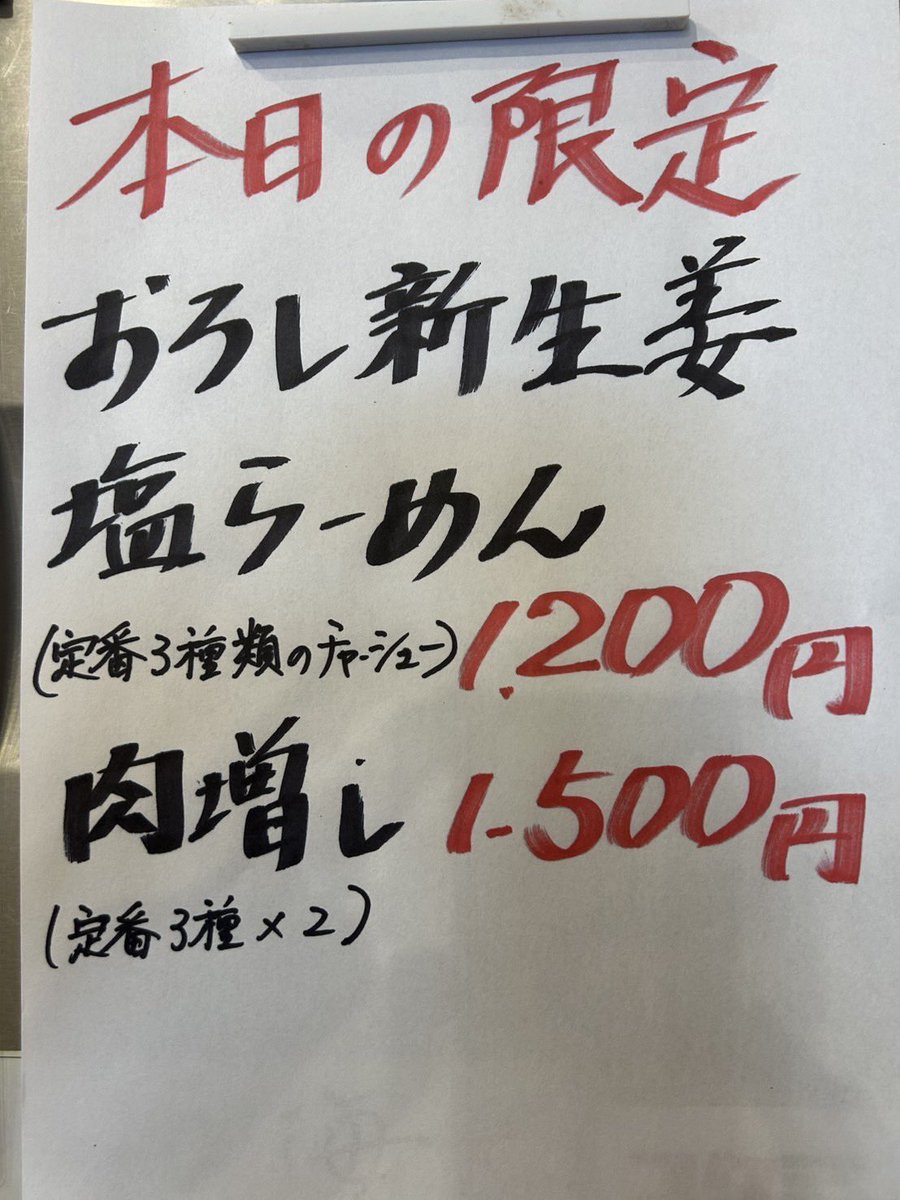 本日の限定
おろし新生姜
塩らーめん
(定番3種類のチャーシュー) 1,200円
肉増し 1,500円
(定番3種×2)